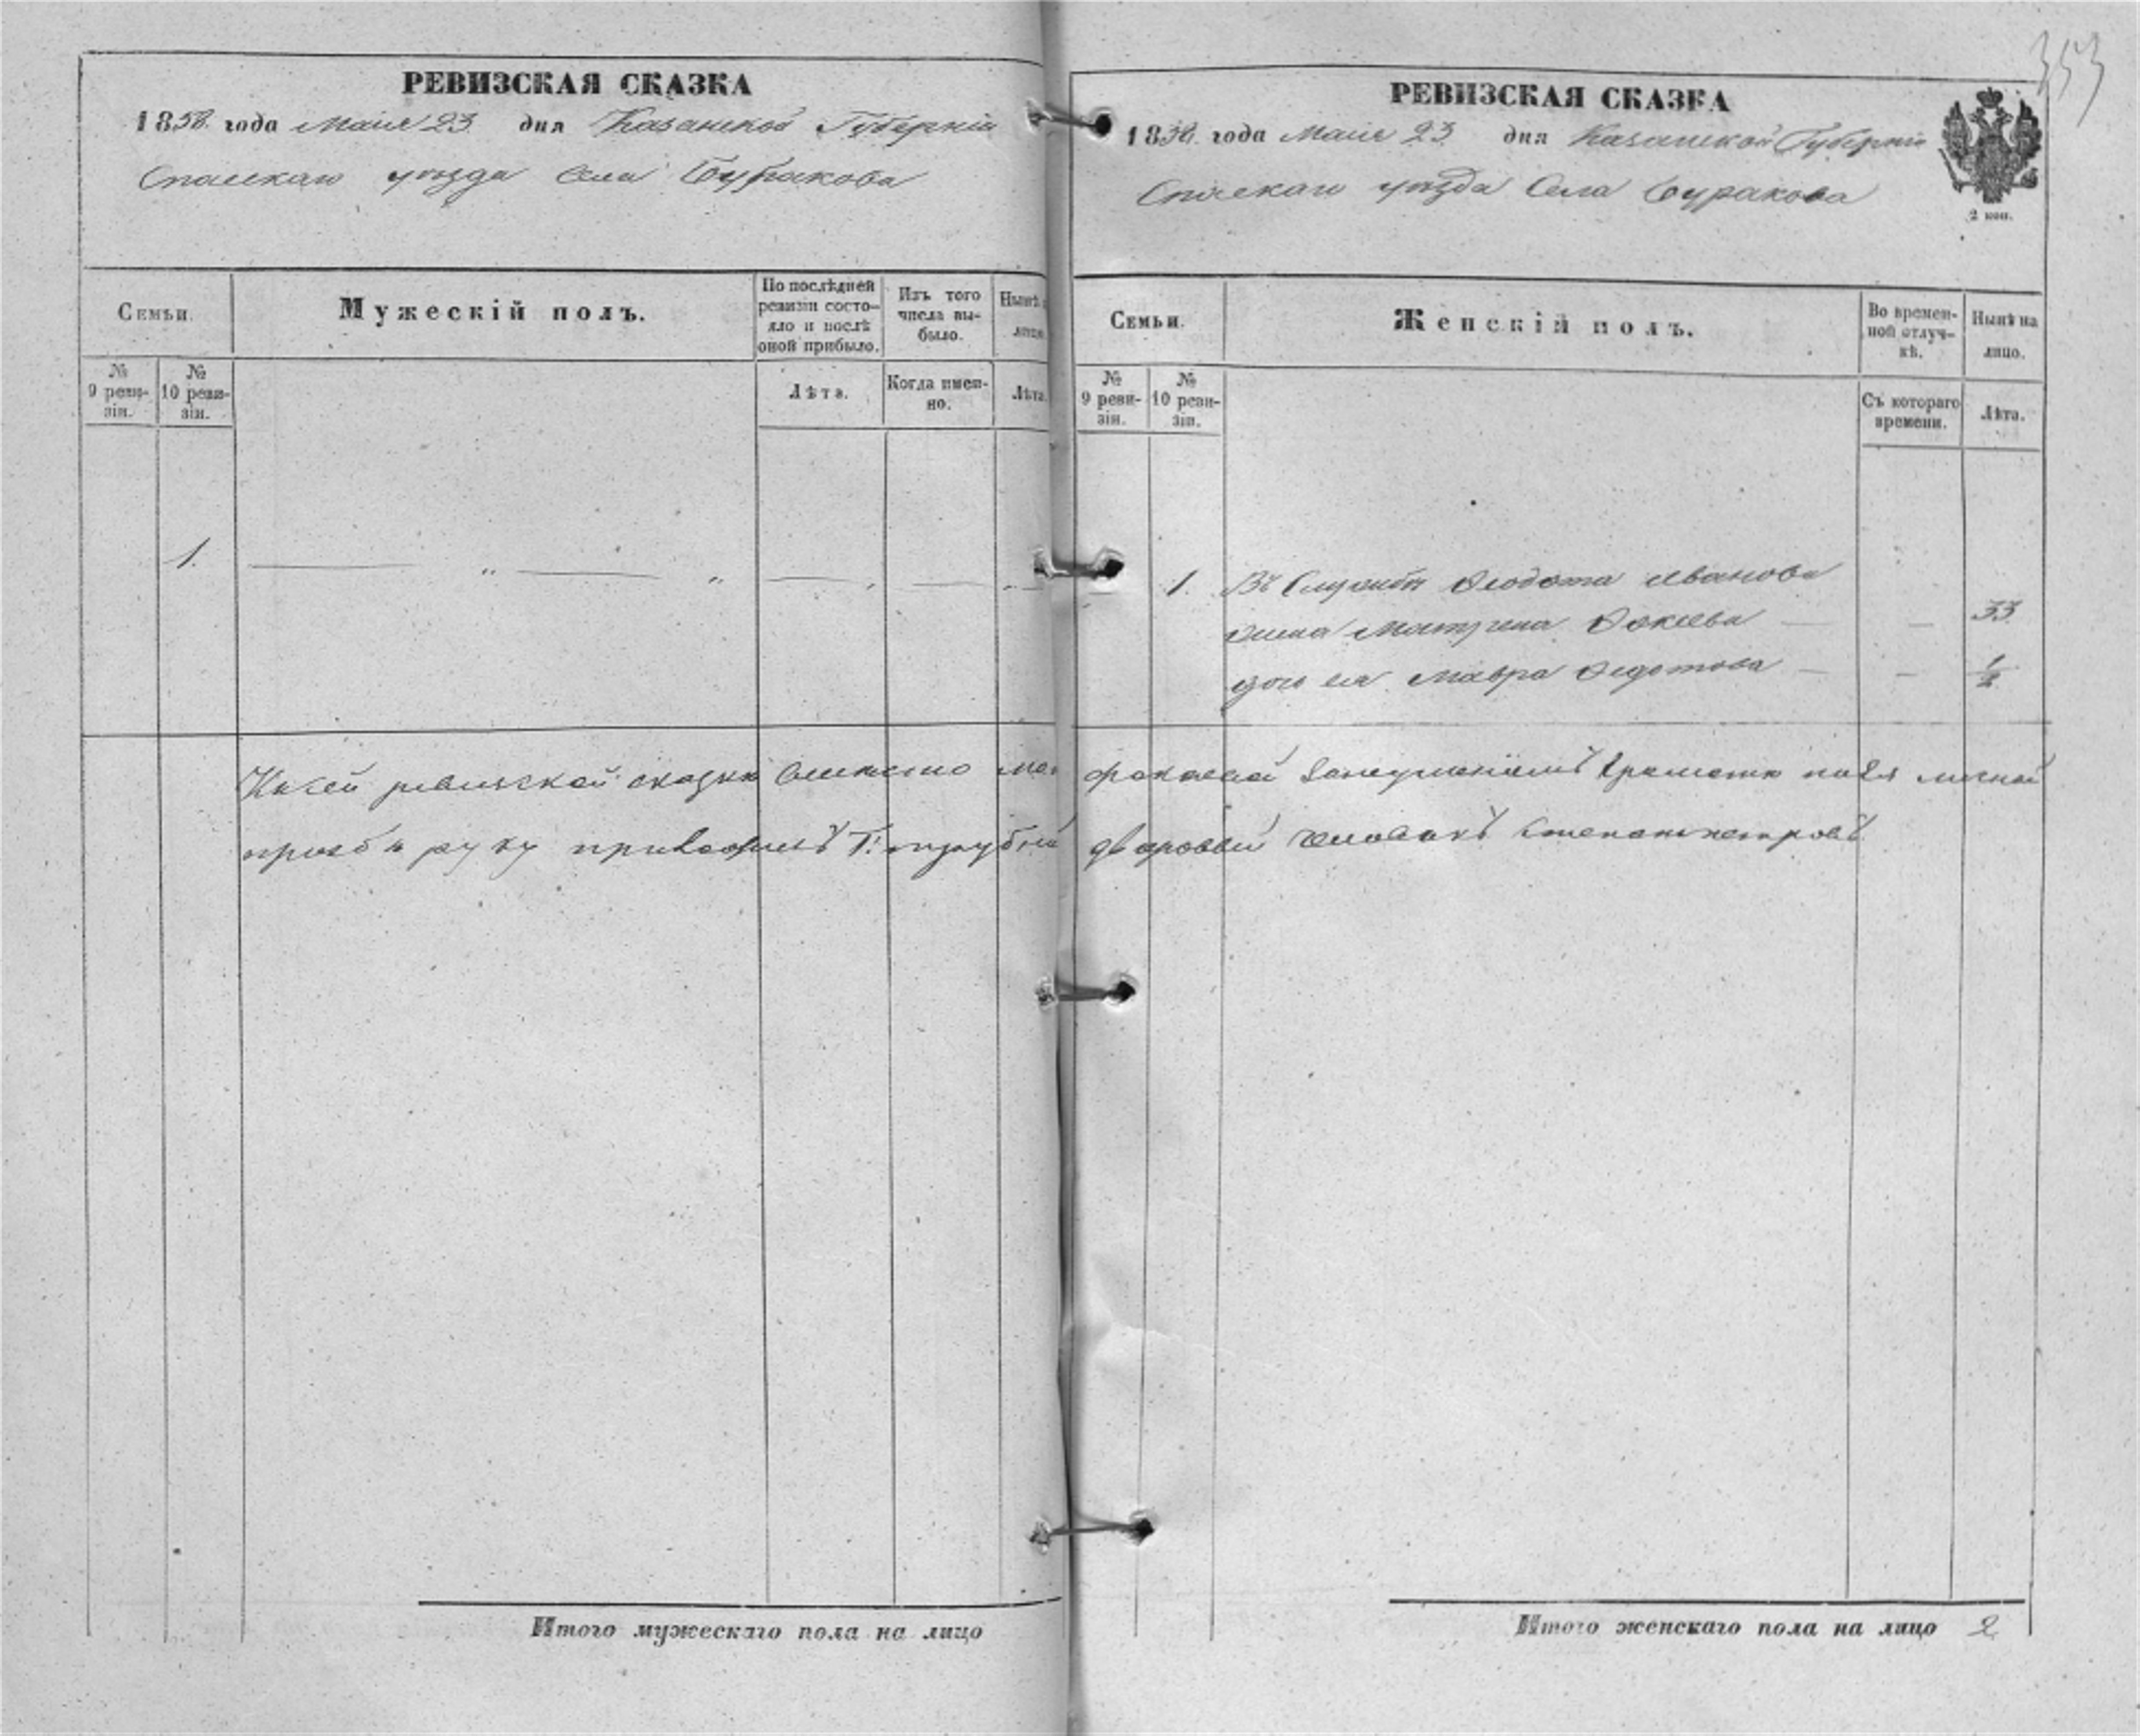 353
РЕВИЗСКАЯ СКАЗКА
1858 года Маия 23 дня Казанской Губерніи
Спаскаго уѣзда Села Буракова
Семьи.
Мужескій полъ.
По послѣдней ревизіи состояло и послѣ оной прибыло.
Изъ того числа выбыло.
Нынѣ
№ 9 ревизіи.
№ 10 ревизіи.
Лѣта.
Когда именно.
Лѣта.
1.
Ксей ревизской сказки вместо
прозбы руку приложилъ
Итого мужескаго пола на лицо
РЕВИЗСКАЯ СКАЗКА
1858 года Маия 23 дня Казанской Губерніи
Спаскаго уѣзда Села Буракова
2 коп.
Семьи.
Женскій полъ.
Во временной отлучкѣ.
Нынѣ на лицо.
№ 9 ревизіи.
№ 10 ревизіи.
Съ котораго времени.
Лѣта.
1. Въ Службѣ Ѳеодота Иванова
жена Матрена Фокеева — — 33
дочь ея Мавра Федотова — — 1/2
грамоте поея личной
дворовый человекъ степанъ петровъ
Итого женскаго пола на лицо 2